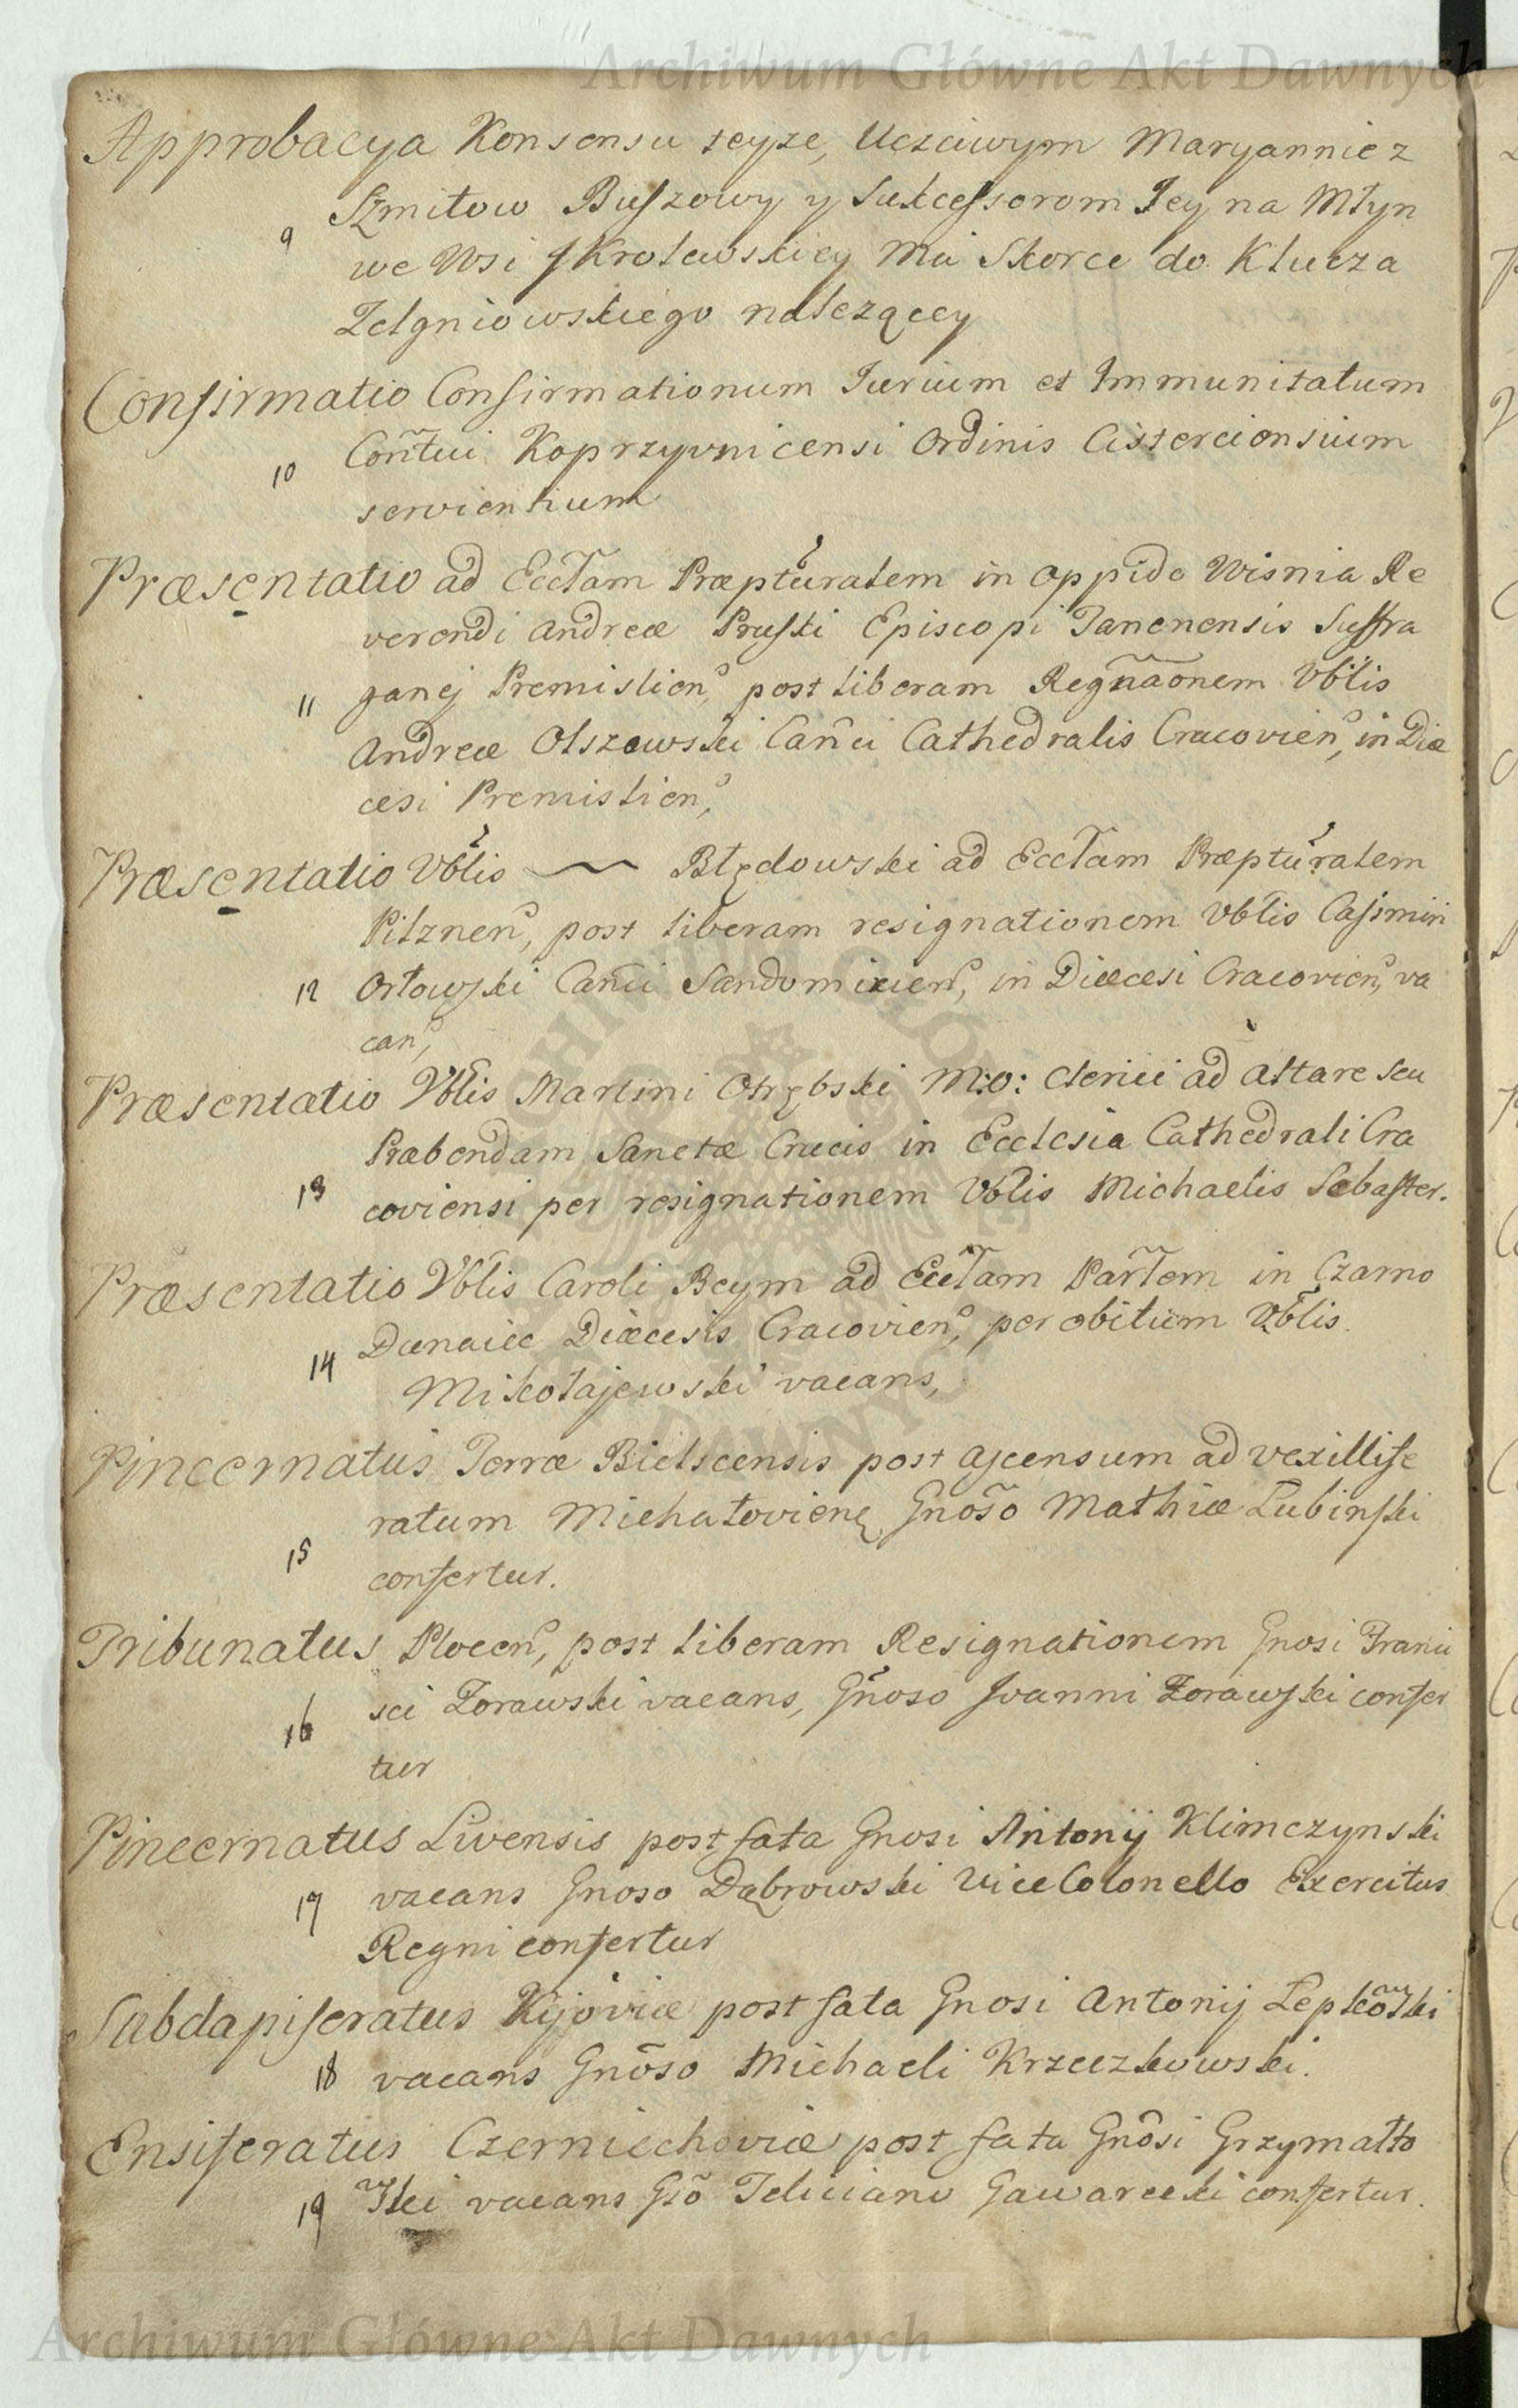 Archiwum Główne Akt Dawnych
Approbacya Konsensu teyze, Uczciwym Maryannie z
Szmitow Buszowy y Sukcessorom Jey na Młyn
9 we Wsi JKrolewskiey Mci Skorce do Klucza
Zelgniowskiego nalezącey
Confirmatio Confirmationum Iurium et Immunitatum
Con̄tui Koprzyvnicensi Ordinis Cistercionsium
10
servientium
Præsentatio ad Eccl̄am Præptūralem in oppido Wisnia Re
verendi Andreæ Pruski Episcopi Tanenensis Suffra
11 ganej Premislien, post liberam Regn̄aōnem Vb̄lis
Andreæ Olszewski Can̄ci Cathedralis Cracovien, in Diæ
cesi Premislien,
Præsentatio Vb̄lis Błędowski ad Eccl̄am Præptūralem
Pilznen, post liberam resignationem Vblis Casimiri
12 Orłowski Can̄ci Sandomirien, in Diæcesi Cracovien, va
can,
Præsentatio Vb̄lis Martini Otrębski M:O: Clerici ad Altare seu
Præbendam Sanctæ Crucis in Ecclesia Cathedrali Cra
13 coviensi per resignationem Vblis Michaelis Sebaster.
Præsentatio Vb̄lis Caroli Beym ad Eccl̄am Par̄lem in Czarno
Dunaiec Diæcesis Cracovien, per obitum Vb̄lis.
14
Mikołajewski vacans,
Pincernatus Terræ Bielscensis post ascensum ad vexillife
ratum Michałoviene Gnōso Mathiæ Łubinski
15
confertur.
Tribunatus Plocen, post liberam Resignationem Gnosi Franci
sci Zorawski vacans, Gn̄oso Joanni Zorawski confer
16
tur
Pincernatus Livensis post fata Gnosi Antonij Klimczynski
17 vacans Gnoso Dąbrowski ViceColonello Exercitus
Regni confertur
Subdapiferatus Kijoviæ post fata Gnosi Antonij Łepkōwski
18 vacans Gnōso Michaeli Krzeczkowski.
Ensiferatus Czerniechoviæ post fata Gnōsi Grzymałto
19 wski vacans Gsō Feliciano Gawarecki confertur.
Archiwum Główne Akt Dawnych